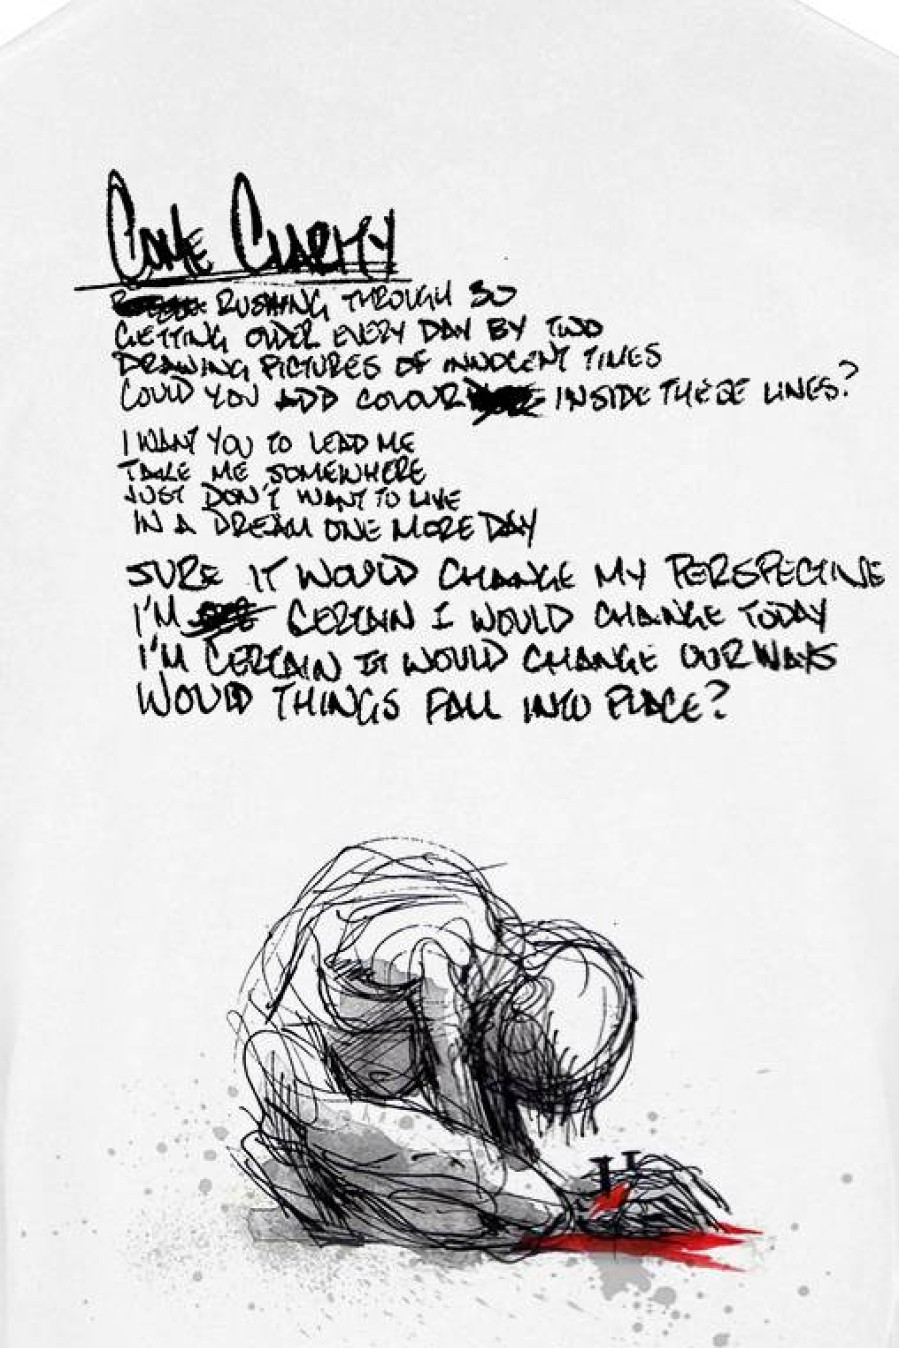 COME CLARITY
RUSHING THROUGH 30
GETTING OLDER EVERY DAY BY TWO
DRAWING PICTURES OF INNOCENT TIMES
COULD YOU ADD COLOUR INSIDE THESE LINES?
I WANT YOU TO LEAD ME
TAKE ME SOMEWHERE
JUST DON'T WANT TO LIVE
IN A DREAM ONE MORE DAY
SURE IT WOULD CHANGE MY PERSPECTIVE
I'M CERTAIN I WOULD CHANGE TODAY
I'M CERTAIN IT WOULD CHANGE OUR WAYS
WOULD THINGS FALL INTO PLACE?